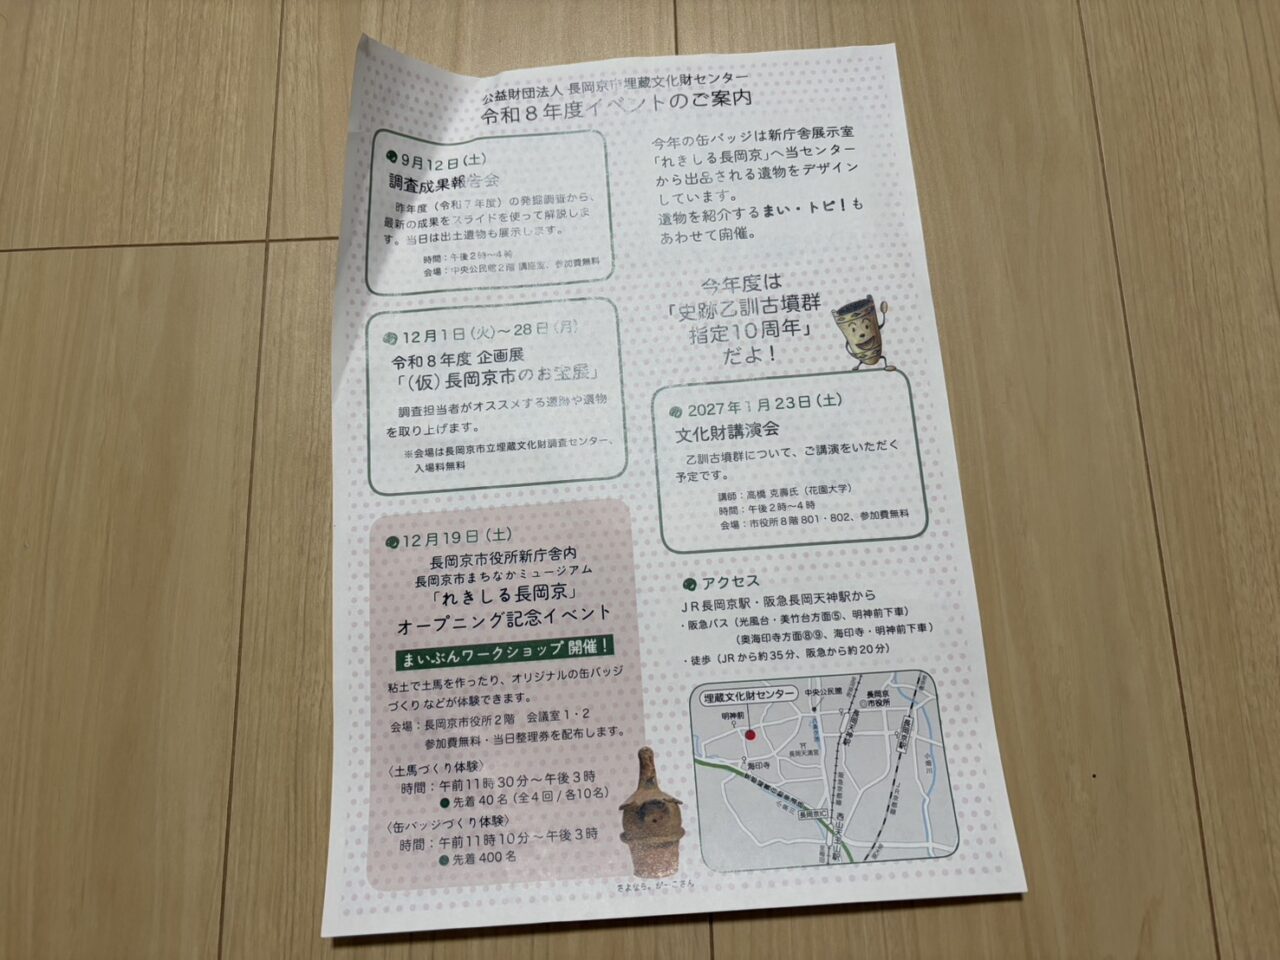 公益財団法人 長岡京市埋蔵文化財センター
令和8年度イベントのご案内
9月12日(土)
調査成果報告会
昨年度(令和7年度)の発掘調査から、
最新の成果をスライドを使って解説しま
す。当日は出土遺物も展示します。
時間:午後2時～4時
会場:中央公民館2階 講座室、参加費無料
12月1日(火)～28日(月)
令和8年度 企画展
「(仮)長岡京市のお宝展」
調査担当者がオススメする遺跡や遺物
を取り上げます。
※会場は長岡京市立埋蔵文化財調査センター、
入場料無料
12月19日(土)
長岡京市役所新庁舎内
長岡京市まちなかミュージアム
「れきしる長岡京」
オープニング記念イベント
まいぶんワークショップ開催!
粘土で土馬を作ったり、オリジナルの缶バッジ
づくりなどが体験できます。
会場:長岡京市役所2階 会議室1・2
参加費無料・当日整理券を配布します。
〈土馬づくり体験〉
時間:午前11時30分～午後3時
●先着40名(全4回/各10名)
〈缶バッジづくり体験〉
時間:午前11時10分～午後3時
●先着400名
さよなら。がーこさん
今年の缶バッジは新庁舎展示室
「れきしる長岡京」へ当センター
から出品される遺物をデザイン
しています。
遺物を紹介するまい・トピ!も
あわせて開催。
今年度は
「史跡乙訓古墳群
指定10周年」
だよ!
2027年1月23日(土)
文化財講演会
乙訓古墳群について、ご講演をいただく
予定です。
講師:高橋 克壽氏(花園大学)
時間:午後2時～4時
会場:市役所8階801・802、参加費無料
アクセス
JR長岡京駅・阪急長岡天神駅から
・阪急バス(光風台・美竹台方面⑤、明神前下車)
(奥海印寺方面⑧⑨、海印寺・明神前下車)
・徒歩(JRから約35分、阪急から約20分)
埋蔵文化財センター
中央公民館
長岡京
◎市役所
明神前
八条ヶ池
長岡天神駅
長岡京駅
長岡天満宮
海印寺
小畑川
小泉川
阪急京都線
JR京都線
長岡京IC
西山天王山駅